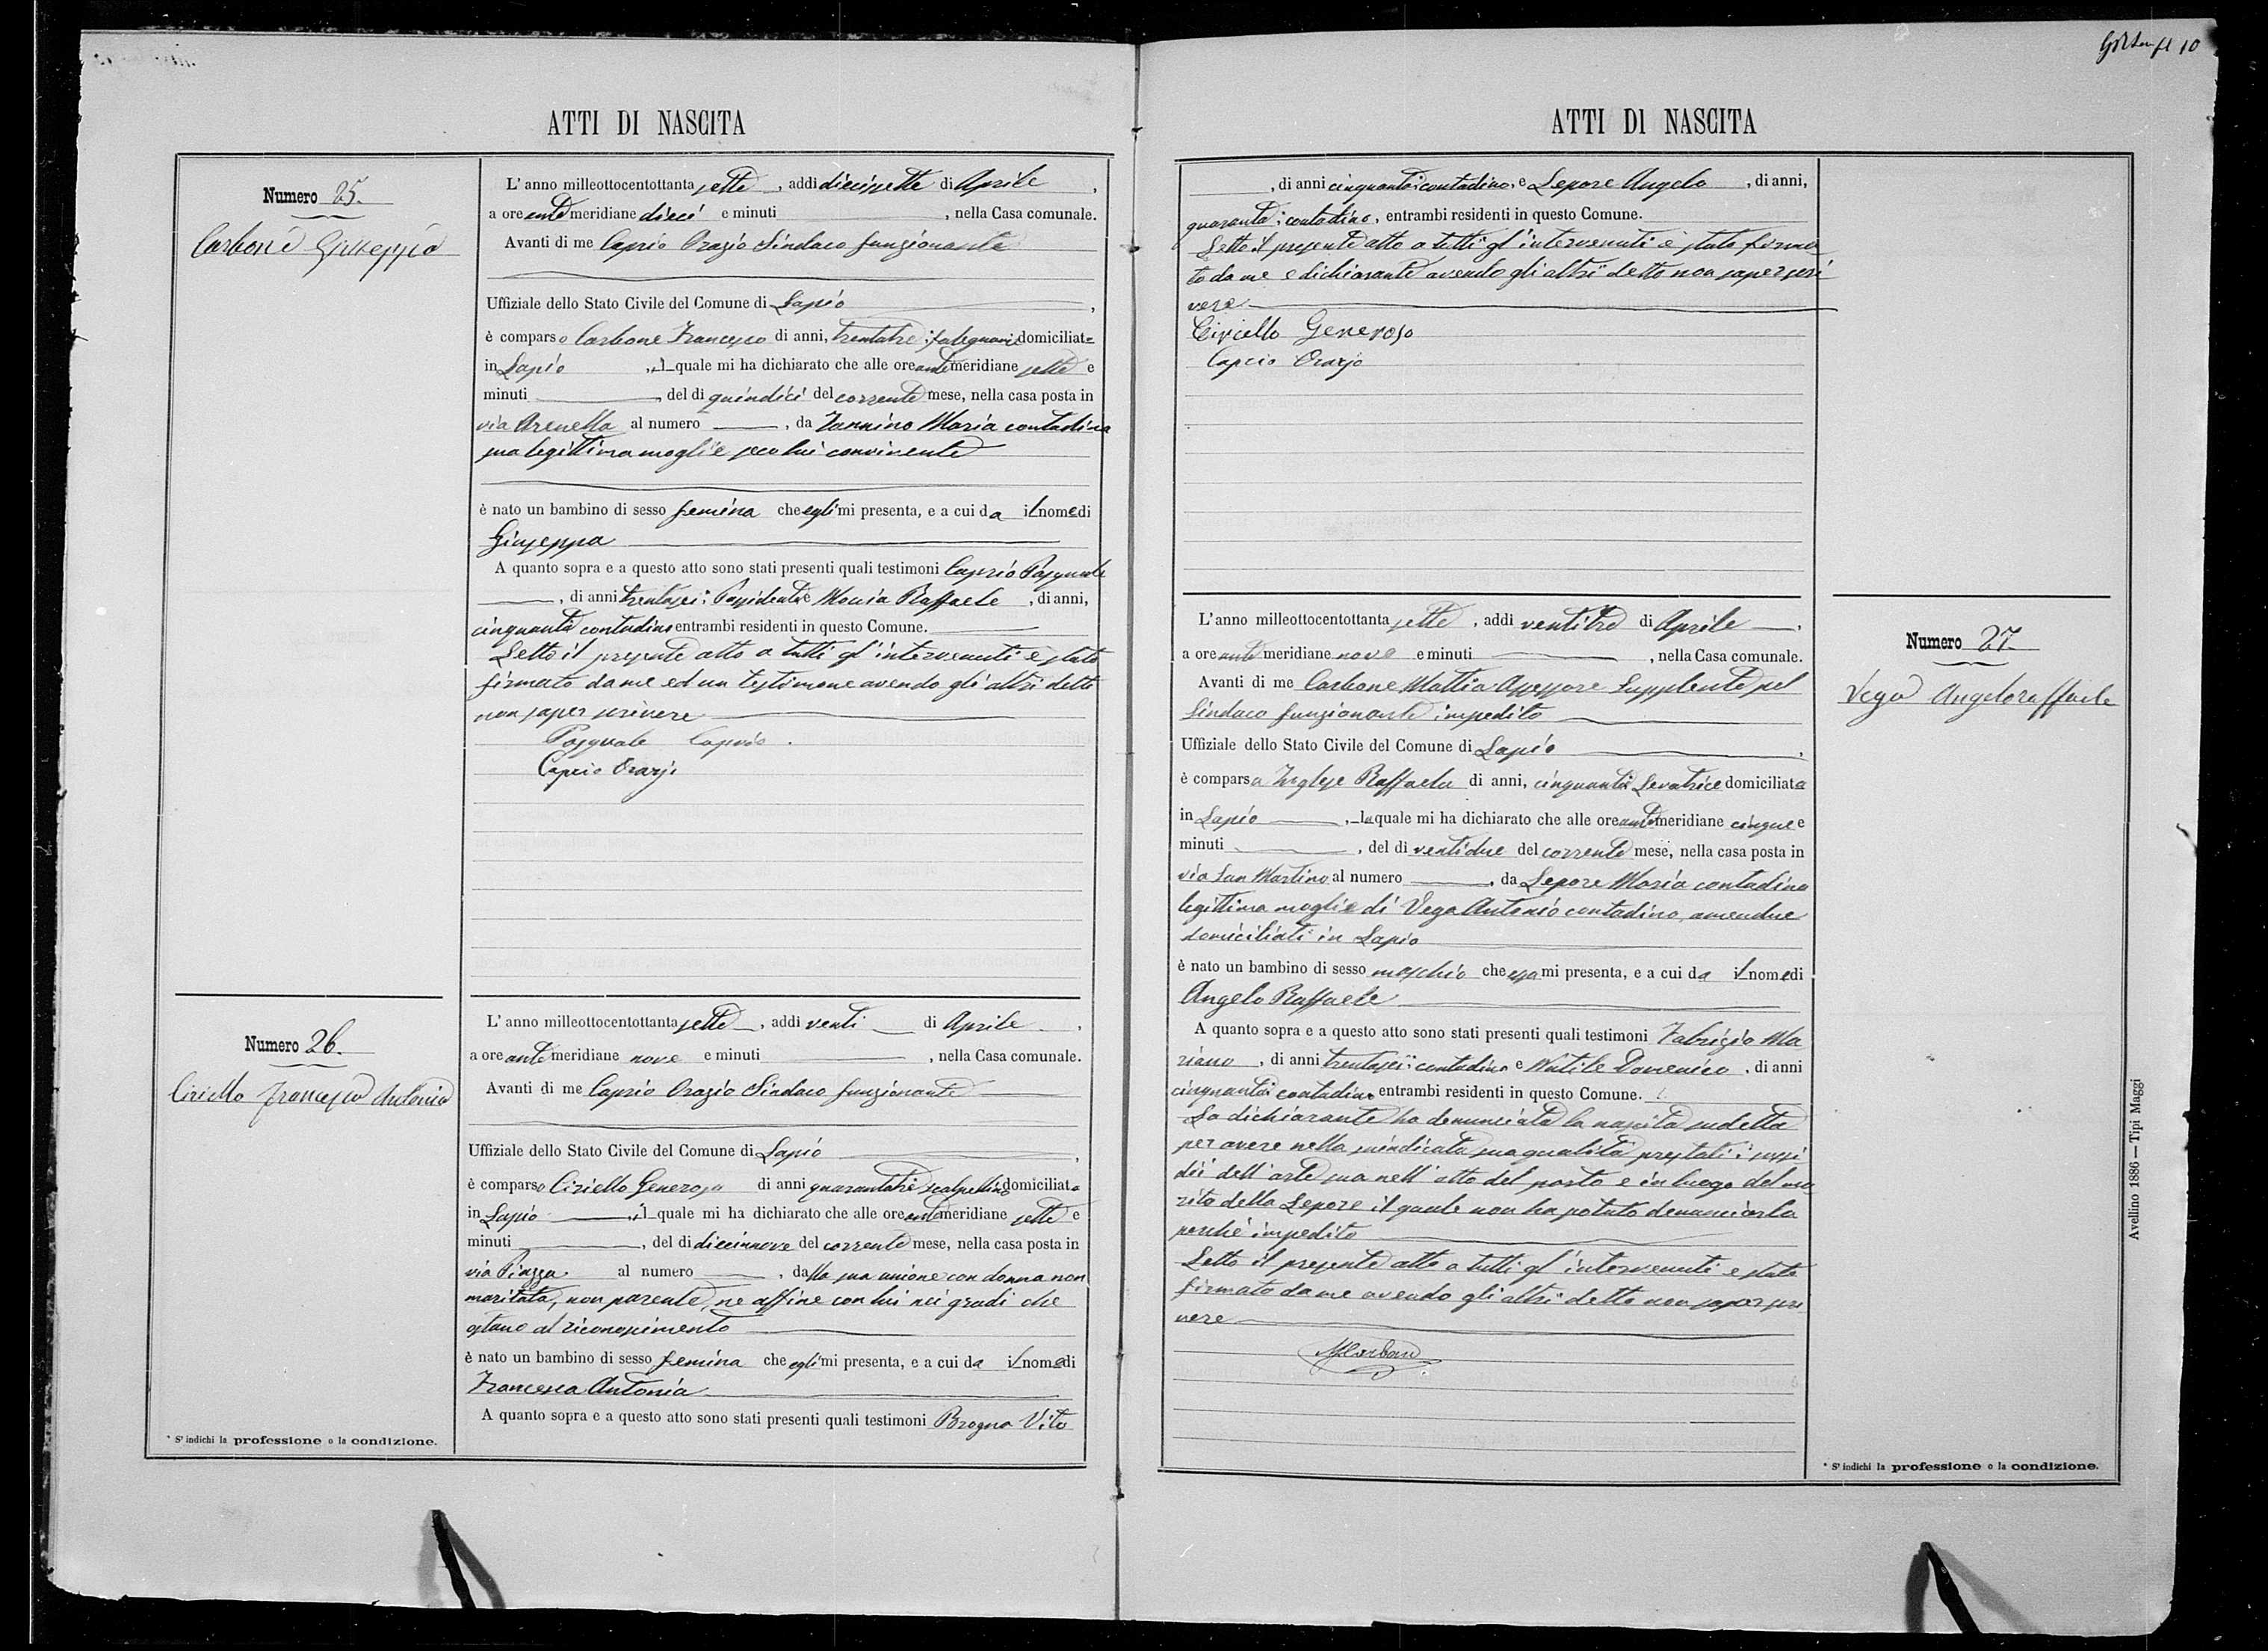 ATTI DI NASCITA
Numero 25.
Carbone Giuseppa
L'anno milleottocentottantasette, addi diecisette di Aprile,
a ore antemeridiane dieci e minuti , nella Casa comunale.
Avanti di me Caprio Orazio Sindaco funzionante
Uffiziale dello Stato Civile del Comune di Lapio,
è comparso Carbone Francesco di anni, trentatre; falegname domiciliat
in Lapio, il quale mi ha dichiarato che alle ore antemeridiane sette e
minuti , del di quindici del corrente mese, nella casa posta in
via Arenella al numero , da Iannino Maria contadina
sua legittima moglie seco lui convivente
è nato un bambino di sesso femina che egli mi presenta, e a cui da il nome di
Giuseppa
A quanto sopra e a questo atto sono stati presenti quali testimoni Caprio Pasquale
, di anni trentasei; Possidente e Monia Raffaele, di anni,
cinquanta contadino entrambi residenti in questo Comune.
Letto il presente atto a tutti gl'intervenuti è stato
firmato da me ed un testimone avendo gli altri detto
non saper scrivere
Pasquale Caprio.
Caprio Orazio
Numero 26.
Ciriello Francesca Antonia
L'anno milleottocentottantasette, addi venti di Aprile,
a ore antemeridiane nove e minuti , nella Casa comunale.
Avanti di me Caprio Orazio Sindaco funzionante
Uffiziale dello Stato Civile del Comune di Lapio,
è comparso Ciriello Generoso di anni quarantatre scalpellino domiciliato
in Lapio, il quale mi ha dichiarato che alle ore antemeridiane sette e
minuti , del di diecinnove del corrente mese, nella casa posta in
via Piazza al numero , dalla sua unione con donna non
maritata, non parente, ne affine con lui nei gradi che
ostano al riconoscimento
è nato un bambino di sesso femina che egli mi presenta, e a cui da il nome di
Francesca Antonia
A quanto sopra e a questo atto sono stati presenti quali testimoni Brogna Vito
* S'indichi la professione o la condizione.
10
ATTI DI NASCITA
, di anni cinquanta; contadino, e Lepore Angelo, di anni,
quaranta; contadino, entrambi residenti in questo Comune.
Letto il presente atto a tutti gl'intervenuti è stato firma
to da me e dichiarante avendo gli altri detto non saper scri
vere
Ciriello Generoso
Caprio Orazio
Numero 27.
Vega Angeloraffaele
L'anno milleottocentottantasette, addi ventitre di Aprile,
a ore antemeridiane nove e minuti , nella Casa comunale.
Avanti di me Carbone Mattia Assessore Supplente pel
Sindaco funzionante impedito
Uffiziale dello Stato Civile del Comune di Lapio,
è comparsa Inglese Raffaela di anni, cinquanta Levatrice domiciliata
in Lapio, la quale mi ha dichiarato che alle ore antemeridiane cinque e
minuti , del di ventidue del corrente mese, nella casa posta in
via San Martino al numero , da Lepore Maria contadina
legittima moglie di Vega Antonio contadino, amendue
domiciliati in Lapio
è nato un bambino di sesso maschio che essa mi presenta, e a cui da il nome di
Angelo Raffaele
A quanto sopra e a questo atto sono stati presenti quali testimoni Fabrizio Ma
riano, di anni trentasei; contadino e Nutile Domenico, di anni
cinquanta contadino entrambi residenti in questo Comune.
La dichiarante ha denunciata la nascita sudetta
per avere nella suindicata sua qualità prestati i sussi
dii dell'arte sua nell'atto del parto e in luogo del ma
rito della Lepore il quale non ha potuto denunciarla
perchè impedito
Letto il presente atto a tutti gl'intervenuti è stato
firmato da me avendo gli altri detto non saper scri
vere
MCarbone
* S'indichi la professione o la condizione.
Avellino 1886 — Tipi Maggi